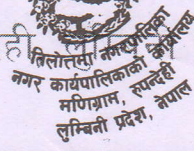 तिलोत्तमा नगरपालिका
नगर कार्यपालिकाको कार्यालय
मणिग्राम, रुपन्देही
लुम्बिनी प्रदेश, नेपाल
ही